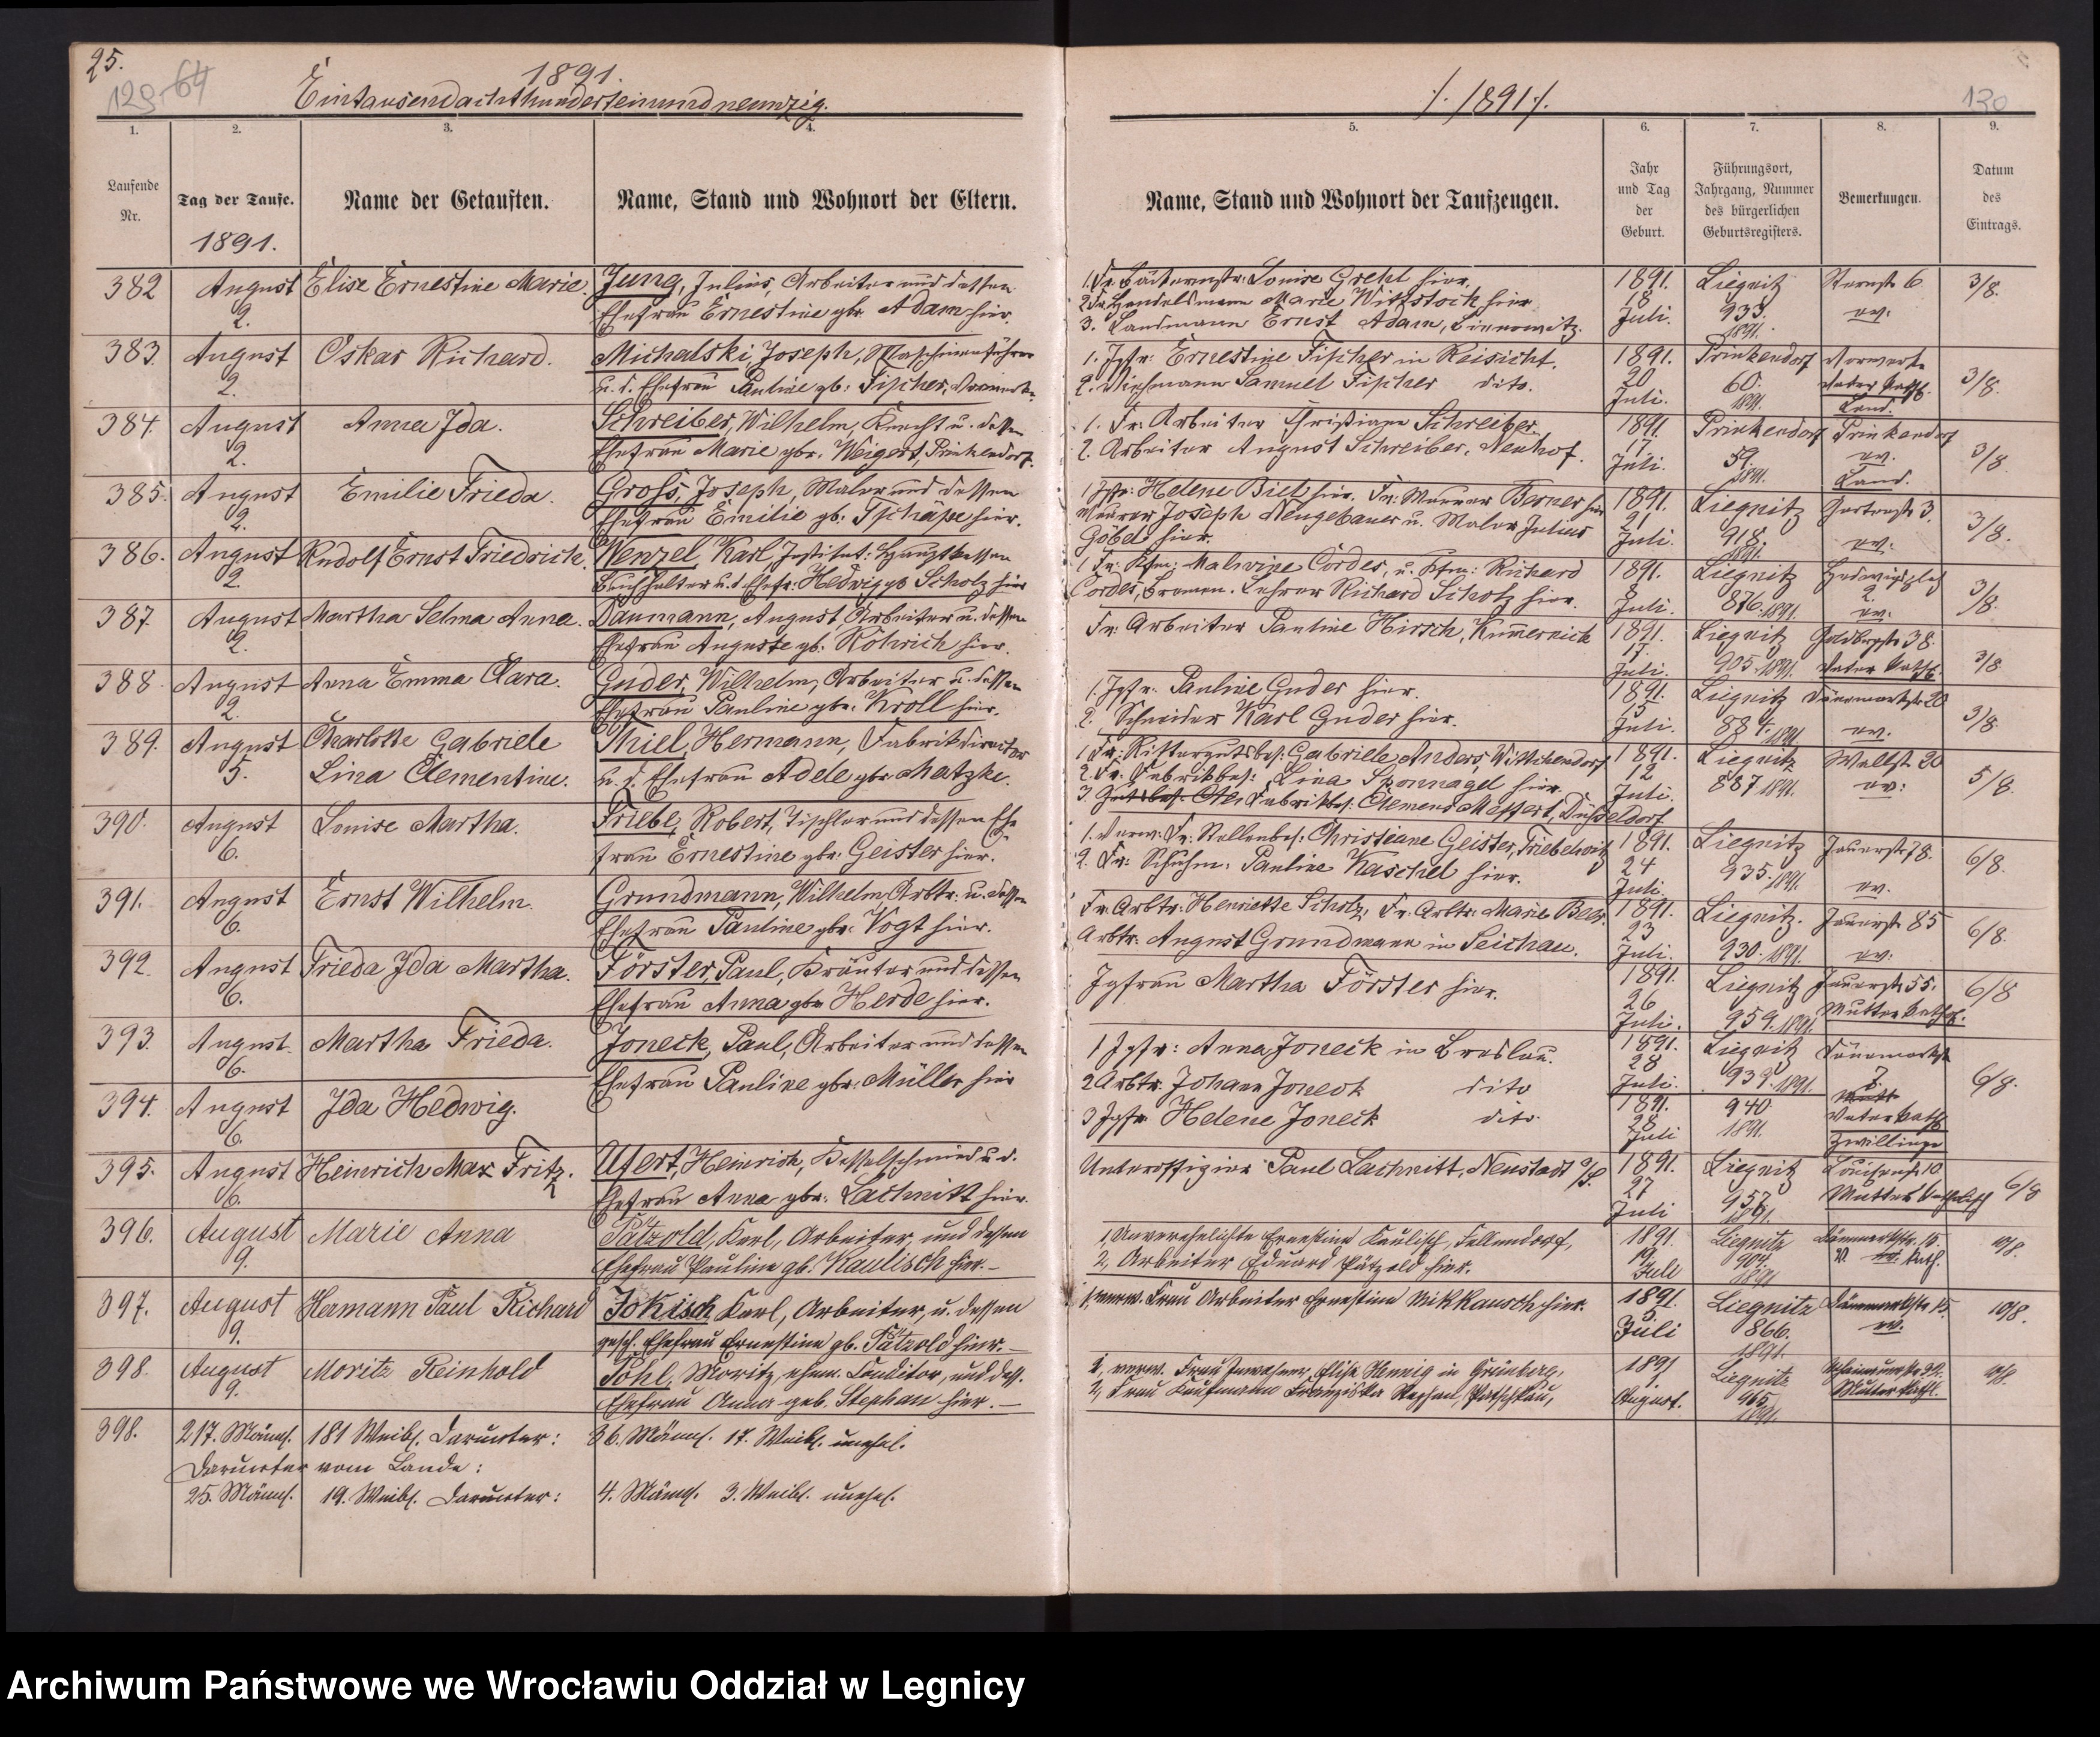 25.
129 64
1891.
Eintausendachthunderteinundneunzig.
1.
2.
3.
4.
Laufende
Nr.
Tag der Taufe.
Name der Getauften.
Name, Stand und Wohnort der Eltern.
1891.
382 August Elise Ernestine Marie. Jung, Julius, Arbeiter und dessen
2. Ehefrau Ernestine gbr. Adam hier.
383. August Oskar Richard. Michalski, Joseph, Maschinenführer
2. u. d. Ehefrau Pauline gb. Fischer,
384. August Anna Ida. Schreiber, Wilhelm, Knecht u. dessen
2. Ehefrau Marie gbr. Weigert, Prinkendorf.
385. August Emilie Frieda. Gross, Joseph, Maler und dessen
2. Ehefrau Emilie gb. Tschape hier.
386. August Rudolf Ernst Friedrich. Wenzel, Karl, Institut. Hauptkassen
2. Buchhalter u. d. Ehefr. Hedwig gb Scholz hier
387. August Martha Selma Anna. Daumann, August, Arbeiter u. dessen
2. Ehefrau Auguste gb. Röhrich hier.
388. August Anna Emma Clara. Guder, Wilhelm, Arbeiter u. dessen
2. Ehefrau Pauline gbr. Kroll hier.
389. August Charlotte Gabriele Thiel, Hermann, Fabrikdirector
5. Lina Clementine. u. d. Ehefrau Adele gbr. Matzke.
390. August Louise Martha. Friebe, Robert, Tischler und dessen Ehe
6. frau Ernestine gbr. Geister hier.
391. August Ernst Wilhelm. Grundmann, Wilhelm, Arbtr. u. dessen
6. Ehefrau Pauline gbr. Vogt hier.
392. August Frieda Ida Martha. Förster, Paul, Kräuter und dessen
6. Ehefrau Anna gbr Herde hier.
393. August Martha Frieda. Joneck, Paul, Arbeiter und dessen
6. Ehefrau Pauline gbr. Müller hier
394. August Ida Hedwig.
6.
395. August Heinrich Max Fritz. Ufert, Heinrich, Kesselschmied u. d.
6. Ehefrau Anna gbr. Lachnitt hier.
396. August Marie Anna Pätzold, Karl, Arbeiter, und dessen
9. Ehefrau Pauline gb. Kaulisch hier.–
397. August Hermann Paul Richard Jokisch Karl, Arbeiter, u. dessen
9. gesch. Ehefrau Ernestine gb. Pätzold hier.–
398. August Moritz Reinhold Pohl, Moritz, ehem. Conditor, und dess.
9. Ehefrau Anna geb. Stephan hier.–
398. 217. Männl. 181 Weibl. Darunter: 36. Männl. 17. Weibl. unehel.
Darunter vom Lande:
25. Männl. 19. Weibl. Darunter: 4. Männl. 3. Weibl. unehel.
/. 1891 /.
130
5.
6.
7.
8.
9.
Name, Stand und Wohnort der Taufzeugen.
Jahr
und Tag
der
Geburt.
Führungsort,
Jahrgang, Nummer
des bürgerlichen
Geburtsregisters.
Bemerkungen.
Datum
des
Eintrags.
1. Fr. Louise Grehl hier. 1891. Liegnitz Sternstr 6 3/8.
2. Fr. Handelsmann Marie Wittstock hier 18 933. ev.
3. Landmann Ernst Adam, Juli. 1891.
1. Jgfr. Ernestine Fischer in Reisicht. 1891. Prinkendorf Vorwerke 3/8.
2. Samuel Fischer dito. 20 60. Vater kath.
Juli. 1891. Land.
1. Fr. Arbeiter Christiane Schreiber. 1891. Prinkendorf Prinkendorf 3/8.
2. Arbeiter August Schreiber, Neuhof. 17 59. ev.
Juli. 1891. Land.
1 Jgfr. Helene Bietz hier. Fr. Maurer Berner hier 1891. Liegnitz Gartenstr 3. 3/8.
Maurer Joseph Neugebauer u. Maler Julius 21 918. ev.
Göbel hier. Juli. 1891.
1 Fr. Kfm. Malwine Cordes, u. Kfm. Richard 1891. Liegnitz Hedwigsplatz 3/8.
Cordes, Bremen. Lehrer Richard Scholz hier. 8 Juli. 876. 1891. 2. ev.
Fr. Arbeiter Pauline Hirsch, Kummernick 1891. Liegnitz Goldbergstr 38. 3/8
17. Juli. 905. 1891. Vater kath.
1. Jgfr. Pauline Guder hier. 1891. Liegnitz Dänemarkstr 20 3/8.
2. Schneider Karl Guder hier. 15 Juli. 884. 1891 ev.
1. Fr. Rittergutsbes. Gabriele Anders, 1891. Liegnitz Wallstr 20 5/8.
2. Fr. Fabrikbes. Lina Sponnagel hier. 12 887 1891. ev.
3. Fabrikbes. Clemens Meffert, Düsseldorf Juli.
1. Verw. Fr. Stellenbes. Christiane Geister, Triebelwitz 1891. Liegnitz Jauerstr 78. 6/8.
2. Fr. Schuhm. Pauline Kaschel hier. 24 Juli. 935. 1891. ev.
Fr. Arbtr. Henriette Scholz, Fr. Arbtr. Marie Beer. 1891. Liegnitz. Jauerstr 85 6/8.
Arbtr. August Grundmann in Seichau. 23 Juli. 930. 1891. ev.
Jgfrau Martha Förster hier. 1891. Liegnitz Jauerstr 55. 6/8
26 Juli. 959. 1891. Mutter kathol.
1 Jgfr: Anna Joneck in Breslau. 1891. Liegnitz Dänemarkstr
2 Arbtr. Johann Joneck dito 28 Juli. 939. 1891. 7. 6/8.
3 Jgfr. Helene Joneck dito 1891. 940. Vater kath
28 Juli 1891. Zwillinge
Unteroffizier Paul Lachnitt, Neustadt o/S. 1891. Liegnitz Louisenstr 10 6/8
27 Juli 957. 1891. Mutter katholisch
1, Unverehelichte Ernestine Kaulisch, Fellendorf, 1891. Liegnitz Dänemarkstr. 10/8.
2, Arbeiter Eduard Pätzold hier. 19. Juli 904. 1891 kath.
1, verw. Frau Arbeiter Ernestine Nikkausch hier. 1891. Liegnitz Dänemarkstr 15. 10/8.
5. Juli 866. 1891. ev.
1, verw. Frau Elise Hennig in Grünberg, 1891 Liegnitz 10/8.
2, Frau Kaufmann Franziska Stephan, Patschkau, 1. August. 965. 1891. Mutter kathl.
Archiwum Państwowe we Wrocławiu Oddział w Legnicy